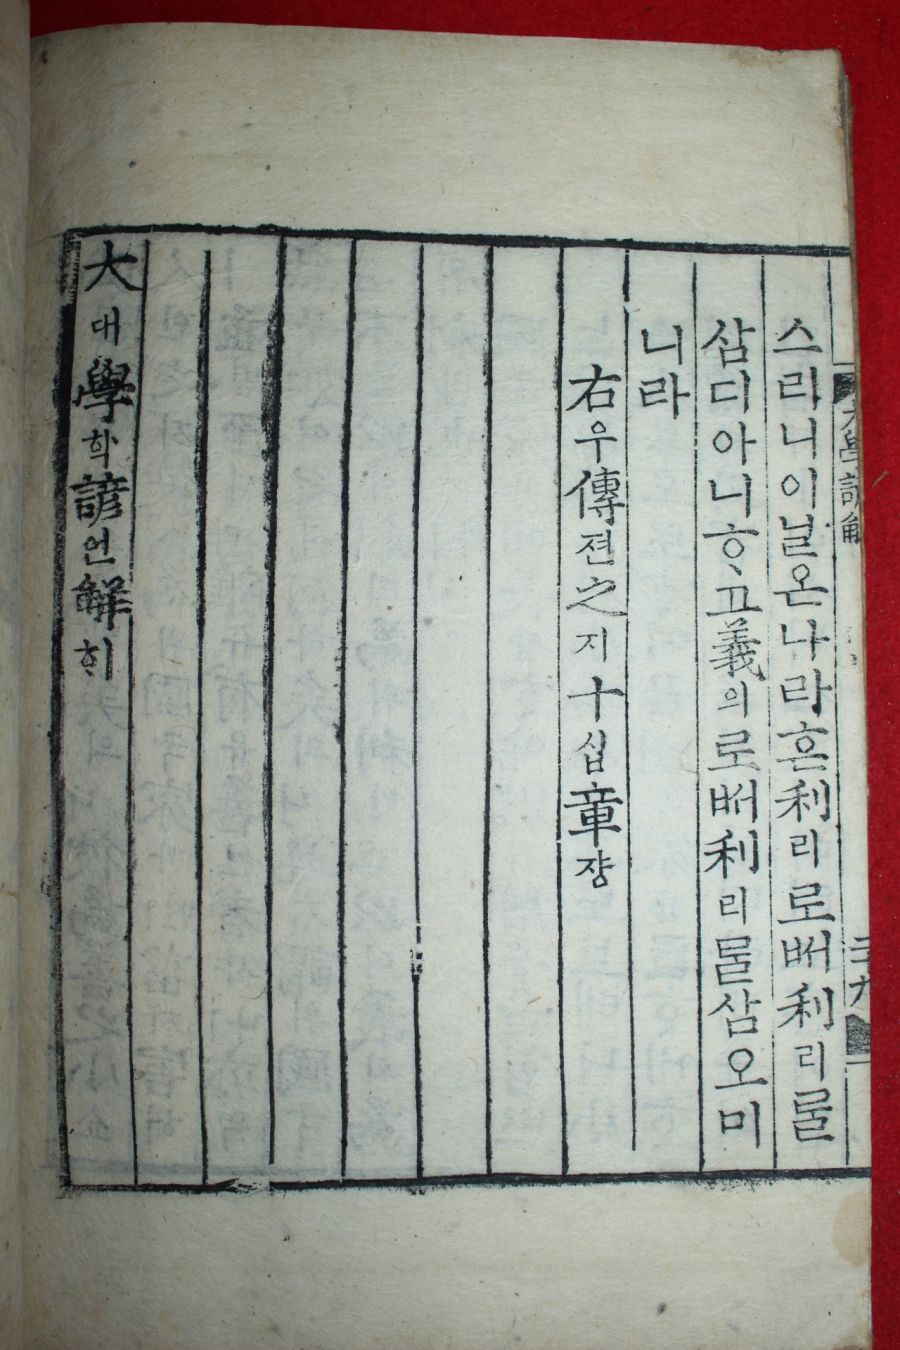 大學諺解
스리니이닐온나라흔利리로ᄡᅥ利리룰
삼디아니ᄒᆞ고義의로ᄡᅥ利리룰삼오미
니라
右우傳젼之지十십章쟝
大대學학諺언解ᄒᆡ